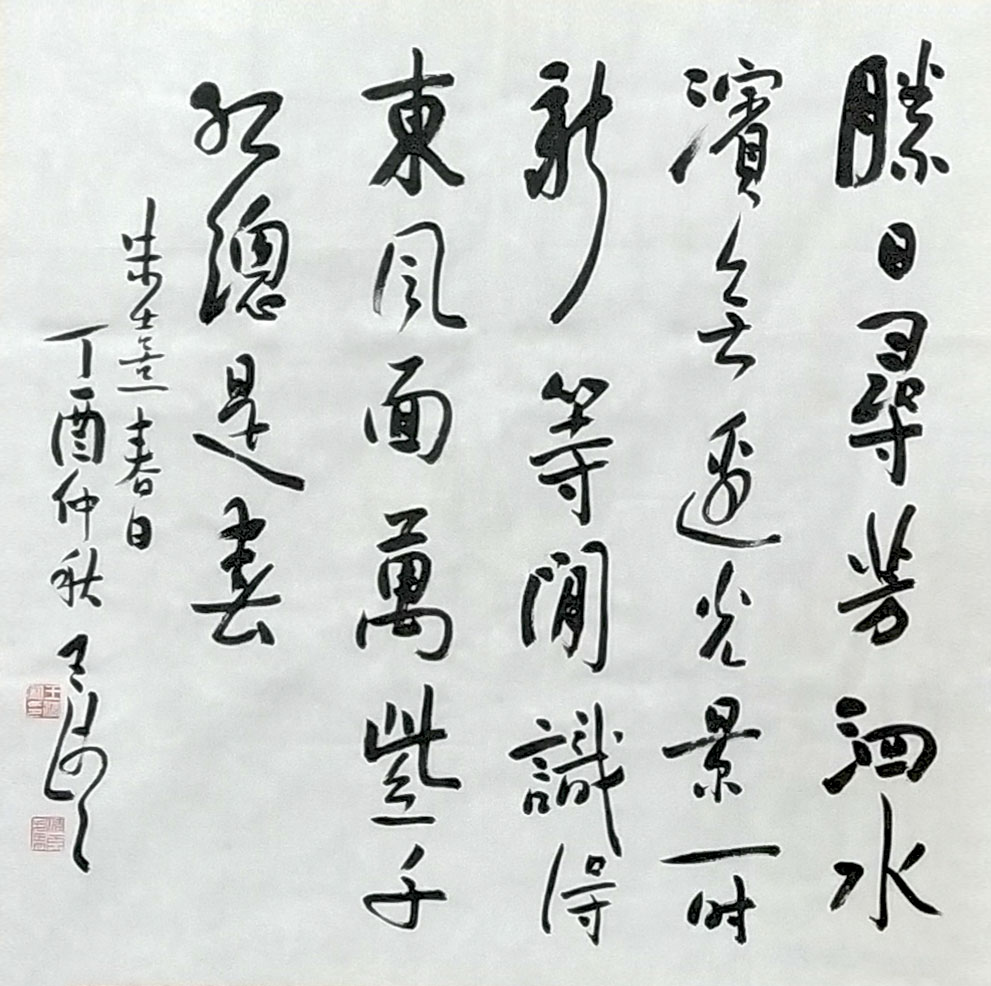 勝日尋芳泗水
濱無邊光景一时
新等閒識得
東風面萬紫千
紅總是春
朱熹春日
丁酉仲秋 王